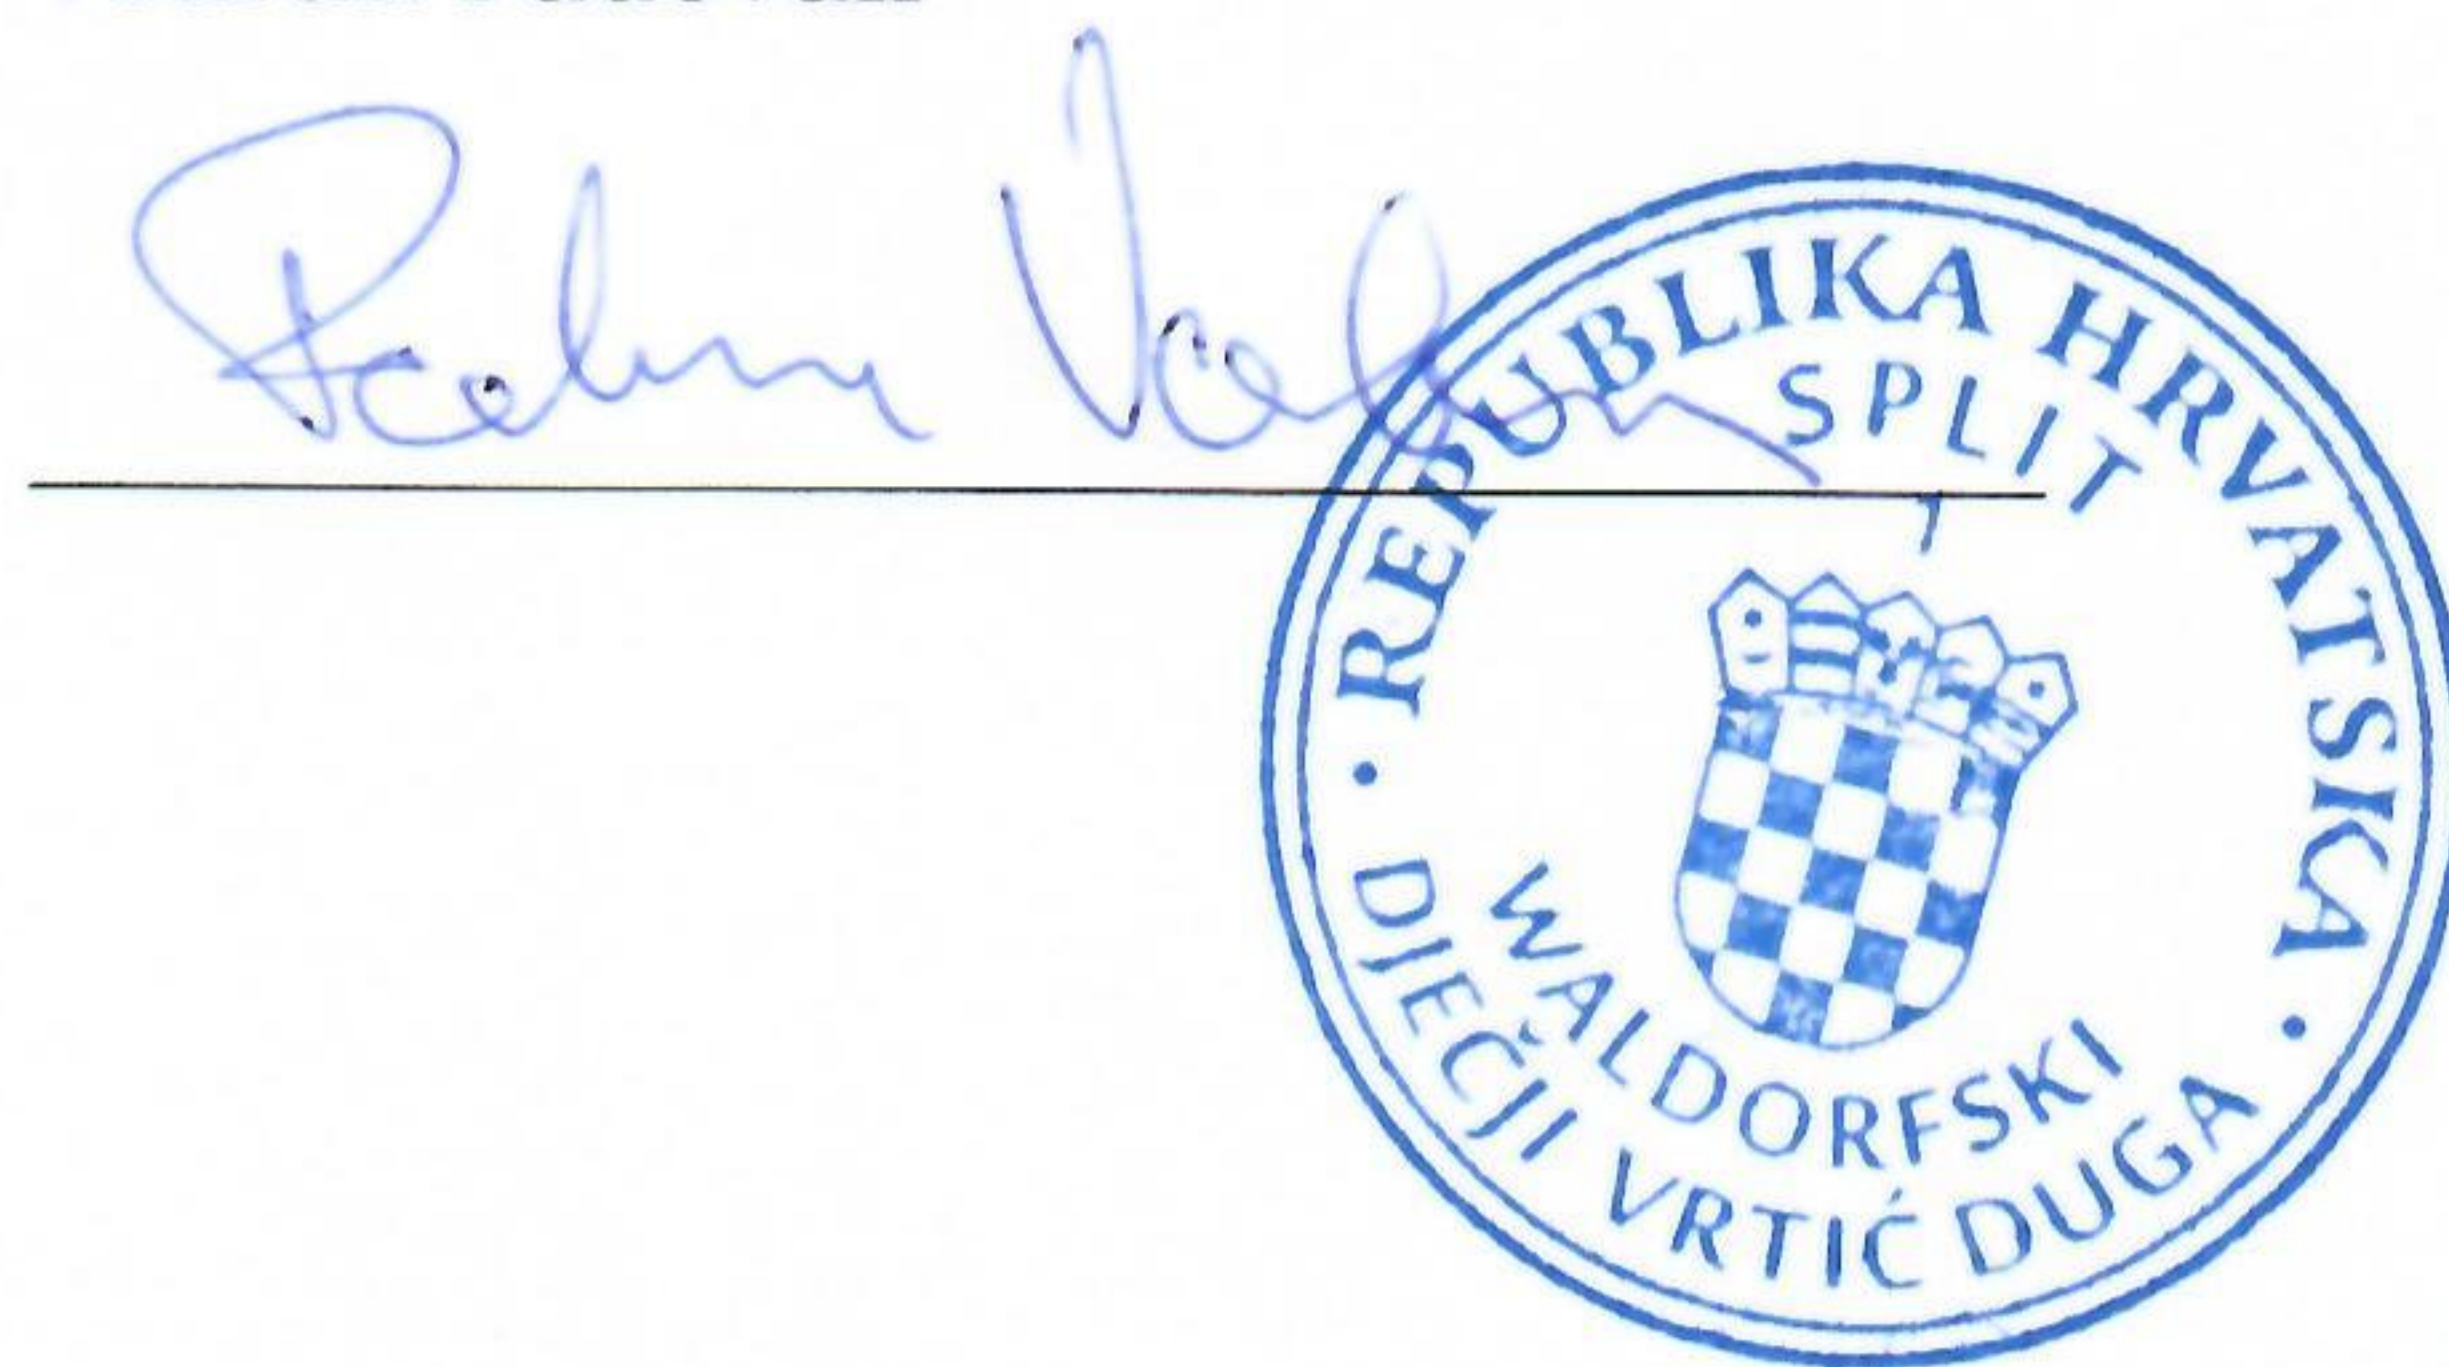 REPUBLIKA HRVATSKA
SPLIT
1
WALDORFSKI
DJEČJI VRTIĆ DUGA